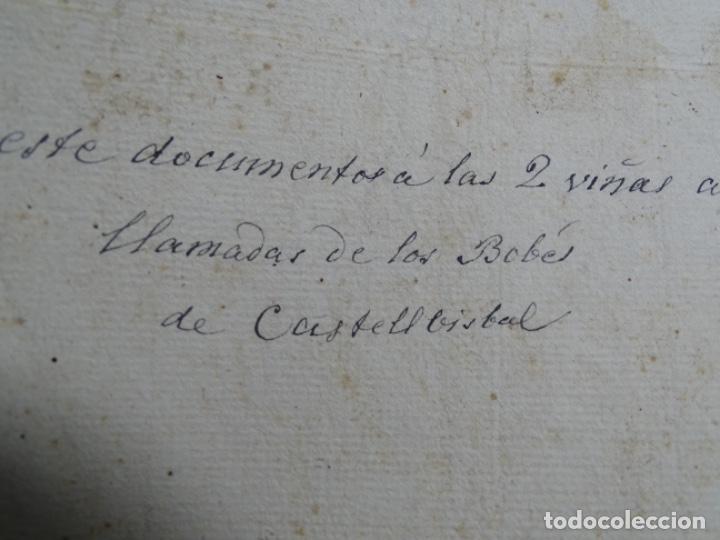 este documentos á las 2 viñas a
llamadas de los Bobés
de Castellbisbal
todocoleccion
todocoleccion.net